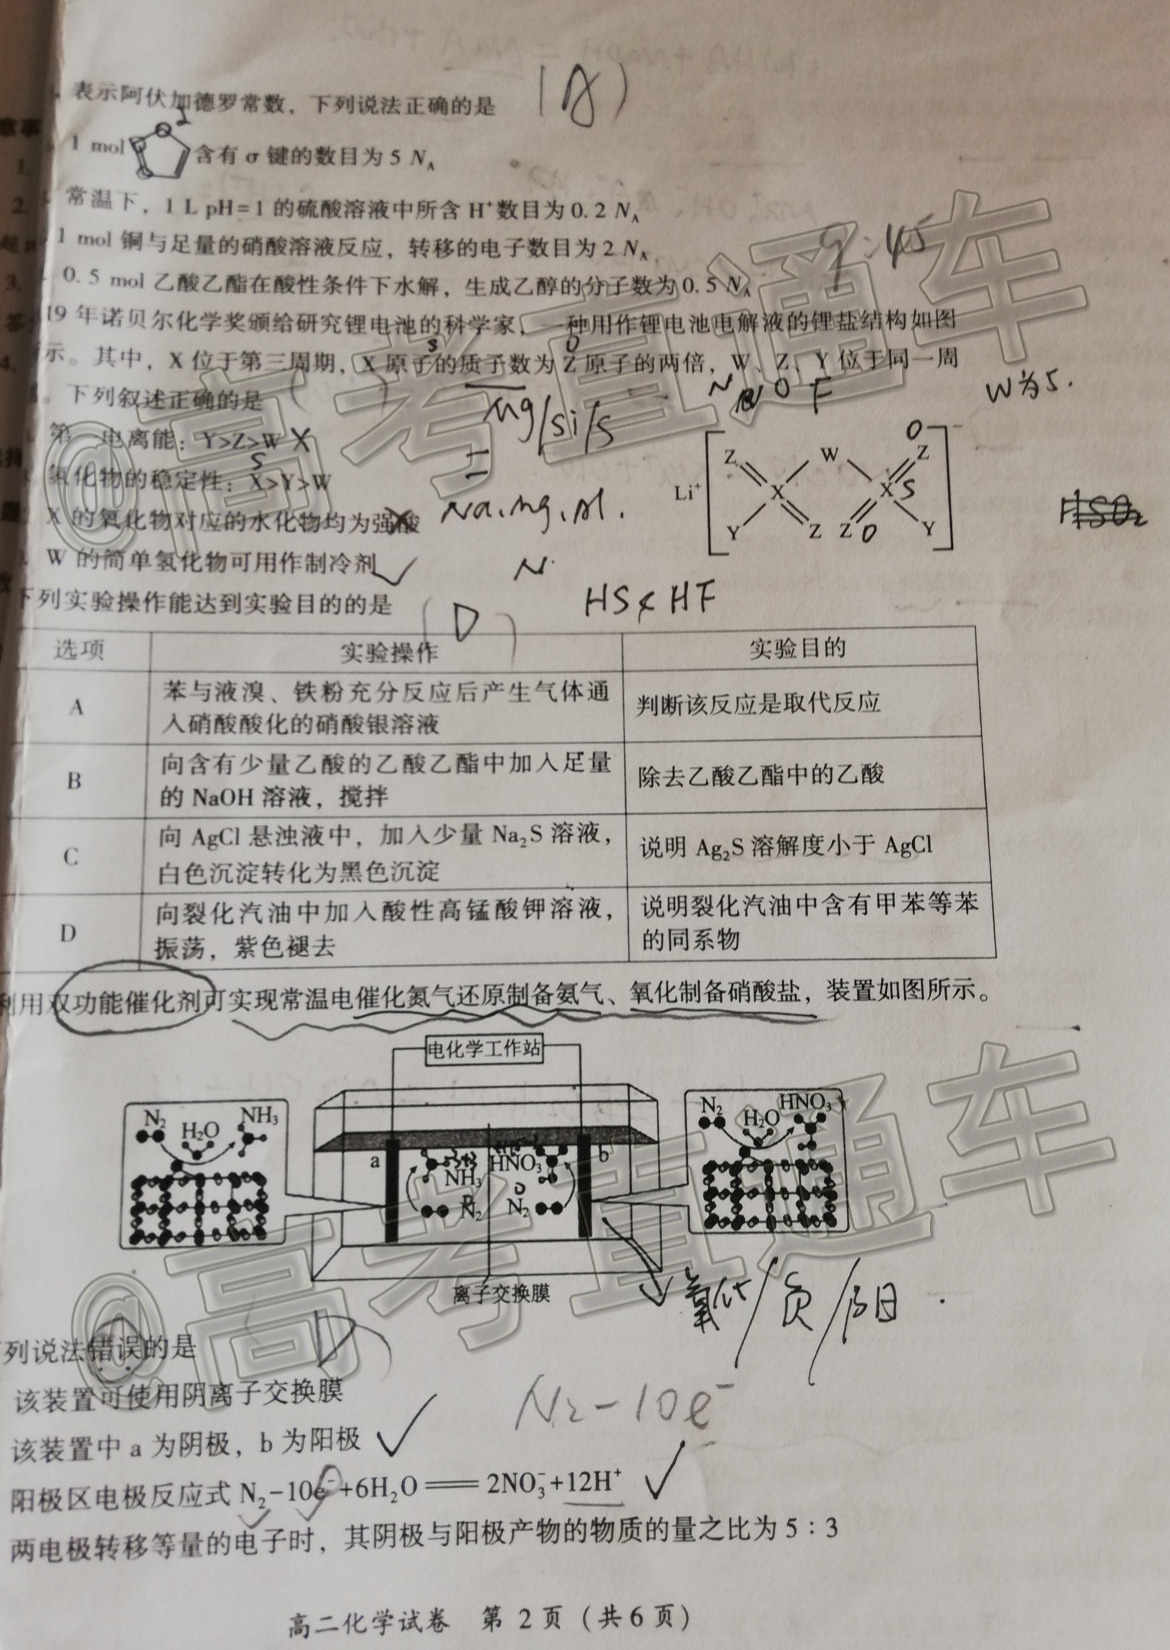 表示阿伏加德罗常数，下列说法正确的是
1 mol 含有 σ 键的数目为 5 NA
常温下，1 L pH=1 的硫酸溶液中所含 H⁺数目为 0.2 NA
1 mol 铜与足量的硝酸溶液反应，转移的电子数目为 2 NA
9:45
0.5 mol 乙酸乙酯在酸性条件下水解，生成乙醇的分子数为 0.5 NA
19 年诺贝尔化学奖颁给研究锂电池的科学家，一种用作锂电池电解液的锂盐结构如图
示。其中，X 位于第三周期，X 原子的质子数为 Z 原子的两倍，W、Z、Y 位于同一周
下列叙述正确的是
Mg/Si/S
N O F
W为5.
第 电离能：Y>Z>W X
氢化物的稳定性：X>Y>W
X 的氧化物对应的水化物均为强酸
Na.Mg.Al.
W 的简单氢化物可用作制冷剂
N.
Li⁺
Z W Z O
X X S
Y Z Z O Y
HSO₂
HS< HF
下列实验操作能达到实验目的的是
(D)
选项 实验操作 实验目的
A 苯与液溴、铁粉充分反应后产生气体通入硝酸酸化的硝酸银溶液 判断该反应是取代反应
B 向含有少量乙酸的乙酸乙酯中加入足量的 NaOH 溶液，搅拌 除去乙酸乙酯中的乙酸
C 向 AgCl 悬浊液中，加入少量 Na₂S 溶液，白色沉淀转化为黑色沉淀 说明 Ag₂S 溶解度小于 AgCl
D 向裂化汽油中加入酸性高锰酸钾溶液，振荡，紫色褪去 说明裂化汽油中含有甲苯等苯的同系物
利用双功能催化剂可实现常温电催化氮气还原制备氨气、氧化制备硝酸盐，装置如图所示。
电化学工作站
N₂ H₂O NH₃
a NH₃ N₂
HNO₃ N₂ b
N₂ H₂O HNO₃
离子交换膜
氧化/负/阳.
列说法错误的是
D
该装置可使用阴离子交换膜
N₂-10e⁻
该装置中 a 为阴极，b 为阳极
阳极区电极反应式 N₂-10e⁻+6H₂O══2NO₃⁻+12H⁺
两电极转移等量的电子时，其阴极与阳极产物的物质的量之比为 5∶3
高二化学试卷 第 2 页（共 6 页）
@高考直通车
@高考直通车